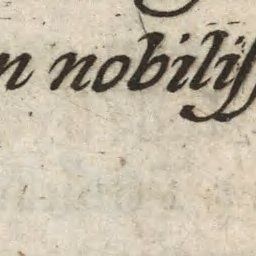 n nobiliſſ